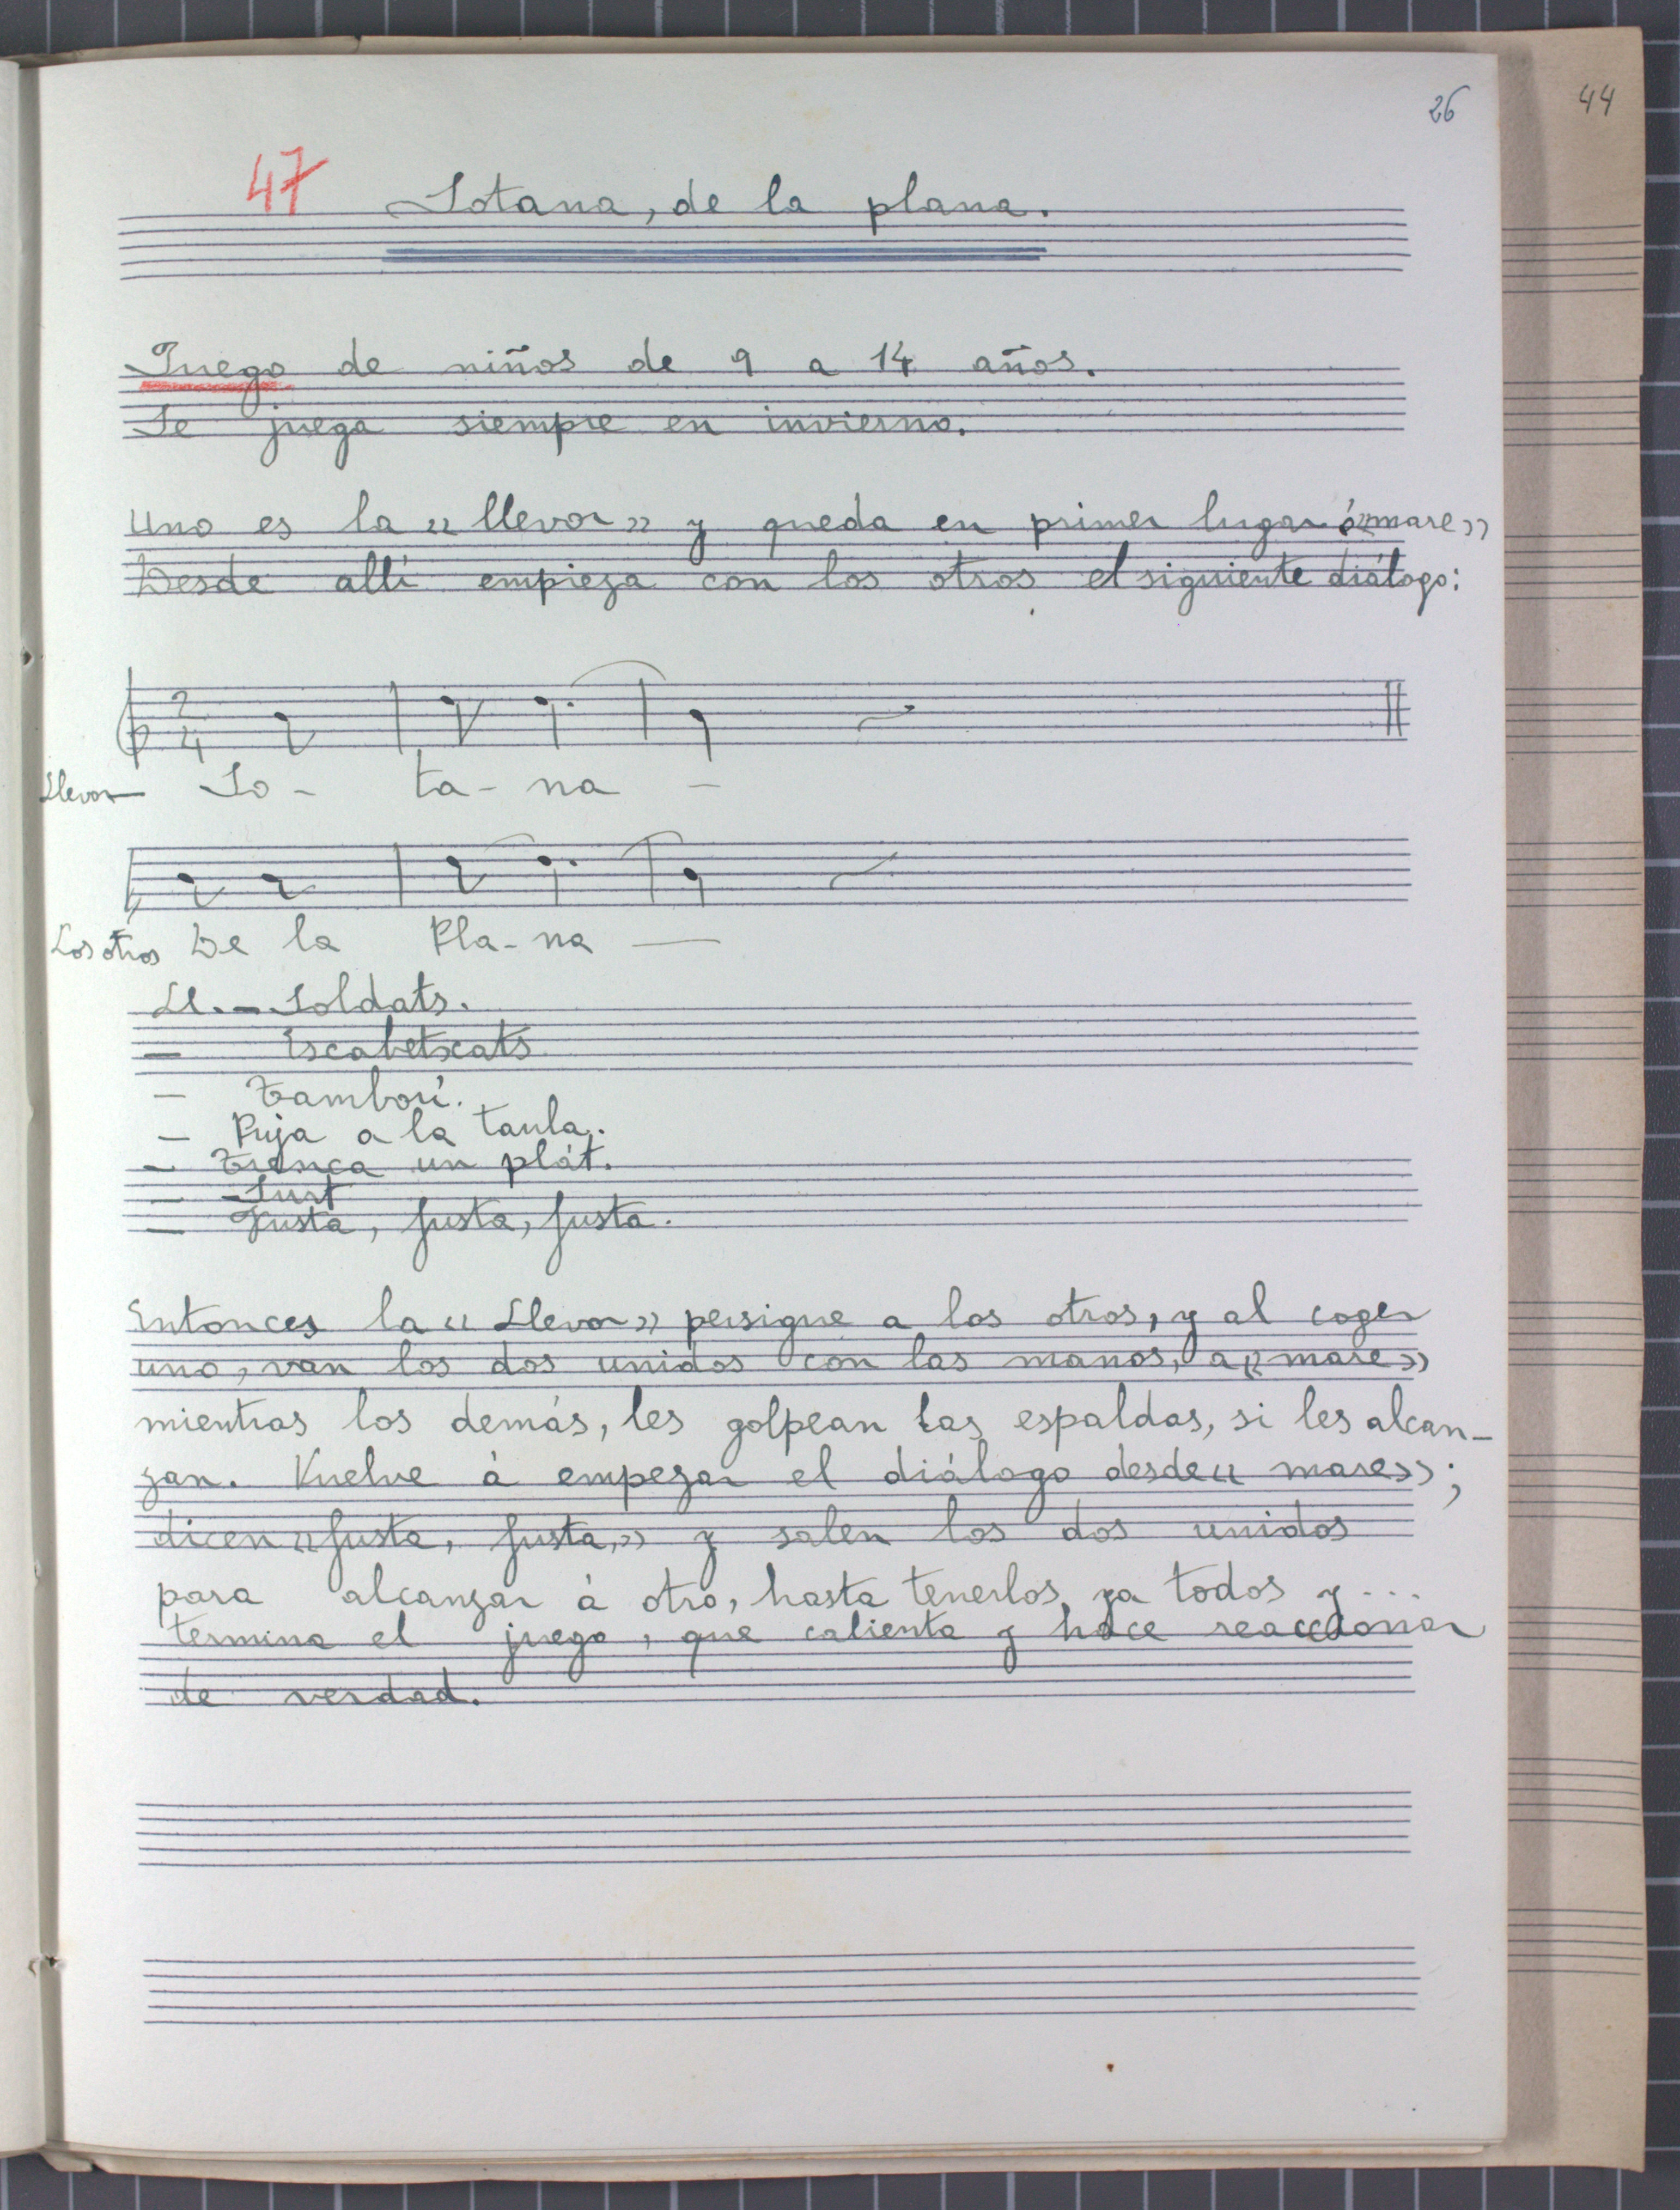 26
44
47 Sotana, de la plana.
Juego de niños de 9 a 14 años.
Se juega siempre en invierno.
Uno es la «llevor» y queda en primer lugar ó «mare»
Desde allí empieza con los otros el siguiente diálogo:
2
4
Llevor — So - ta - na -
Los otros De la Pla - na —
Ll. - Soldats.
— Escabetxats
— Tamborí.
— Puja a la taula.
— Trenca un plát.
— Surt
— Justa, justa, justa.
Entonces la «Llevor» persigue a los otros, y al coger
uno, van los dos unidos con las manos, a «mare»
mientras los demás, les golpean las espaldas, si les alcan-
zan. Vuelve á empezar el diálogo desde «mare»;
dicen «justa, justa,» y salen los dos unidos
para alcanzar á otro, hasta tenerlos ya todos y ...
termina el juego, que calienta y hace reaccionar
de verdad.